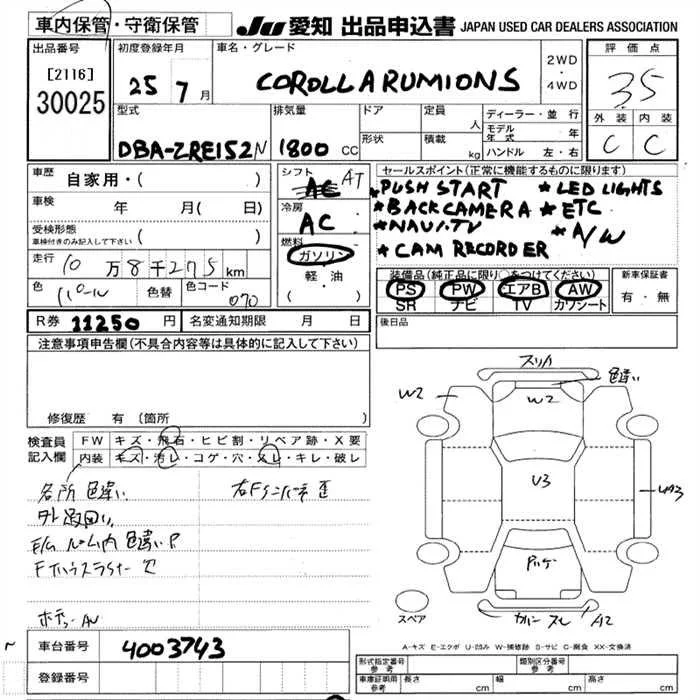 車内保管・守衛保管 JU 愛知 出品申込書 JAPAN USED CAR DEALERS ASSOCIATION
出品番号
[2116]
30025
初度登録年月
25 7月
車名・グレード
COROLLA RUMION S
2WD
・
4WD
評価点
3.5
外装 内装
C C
型式
DBA-ZRE152N
排気量
1800 CC
ドア
形状
定員
人
積載
kg
ディーラー・並行
モデル年式 年
ハンドル 左・右
車歴 自家用・( )
車検 年 月(日 )
受検形態
車検付きのみ記入して下さい ( )
走行 10万8千275km
色 パール 色替 色コード 070
シフト AC AT
冷房
AC
燃料
ガソリン
軽・油
セールスポイント(正常に機能するものに限ります)
★PUSH START ★LED LIGHTS
★BACK CAMERA ★ETC
★NAVI.TV ★A/W
★CAM RECORDER
装備品(純正品に限り○をつけてください)
PS PW エアB AW
SR ナビ TV カワシート
新車保証書
有・無
R券 11250 円 名変通知期限 月 日
後日品
注意事項申告欄(不具合内容等は具体的に記入して下さい)
修復歴 有(箇所 )
検査員記入欄
FW キズ・飛石・ヒビ割・リペア跡・X要
内装 キズ・汚レ・コゲ・穴・スレ・キレ・破レ
各所 色違い
ボディー AU
スリカ
W2 W2 色違い
U3
UA3
A2
スペア
A-キズ E-エクボ U-凹み W-補修跡 S-サビ C-腐食 XX-交換済
車台番号 4003743
登録番号
形式指定番号 参考
類別区分番号 参考
車庫証明用 参考 長さ cm 幅 cm 高さ cm